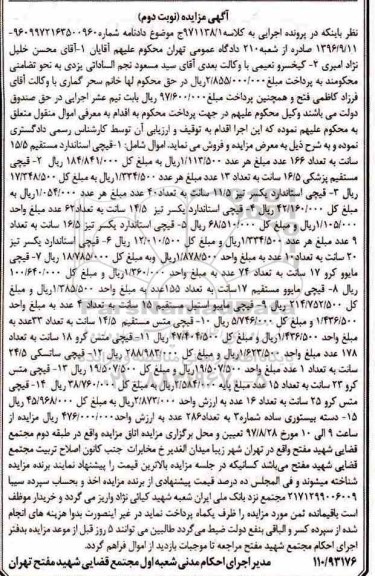 آگهی مزایده (نوبت دوم)
نظر باینکه در پرونده اجرایی به کلاسه ۹۷۱۱۳۸/۱ج موضوع دادنامه شماره ۹۶۰۹۹۷۲۱۶۳۵۰۰۹۶۰-
۱۳۹۶/۹/۱۱ صادره از شعبه ۲۱۰ دادگاه عمومی تهران محکوم علیهم آقایان ۱-آقای محسن خلیل
نژاد امیری ۲- کیخسرو نعیمی با وکالت بعدی آقای سید مسعود نجم الساداتی یزدی به نحو تضامنی
محکومند به پرداخت مبلغ ۲/۸۵۵/۰۰۰/۰۰۰ریال در حق محکوم لها خانم سحر گماری با وکالت آقای
فرزاد کاظمی فتح و همچنین پرداخت مبلغ ۹۷/۶۰۰/۰۰۰ ریال بابت نیم عشر اجرایی در حق صندوق
دولت می باشند وکیل محکوم علیهم در جهت پرداخت محکوم به اقدام به معرفی اموال منقول متعلق
به محکوم علیهم نموده که این اجرا اقدام به توقیف و ارزیابی آن توسط کارشناس رسمی دادگستری
نموده و به شرح ذیل به معرض مزایده و فروش می نماید. اموال شامل: ۱-قیچی استاندارد مستقیم ۱۵/۵
سانت به تعداد ۱۶۶ عدد مبلغ هر عدد ۱/۱۱۳/۵۰۰ریال و به مبلغ کل ۱۸۴/۸۴۱/۰۰۰ ریال ۲- قیچی
مستقیم پزشکی ۱۶/۵ سانت به تعداد ۱۳ عدد مبلغ هر عدد ۱/۳۳۴/۵۰۰ریال و به مبلغ کل ۱۷/۳۴۸/۵۰۰
ریال ۳- قیچی استاندارد یکسر تیز ۱۱/۵ سانت به تعداد ۴۰ عدد مبلغ هر عدد ۱/۰۵۴/۰۰۰ریال به
مبلغ کل ۴۲/۱۶۰/۰۰۰ ریال ۴- قیچی استاندارد یکسر تیز ۱۴/۵ سانت به تعداد ۶۲ عدد مبلغ واحد
۱/۱۰۵/۰۰۰ریال و مبلغ کل ۶۸/۵۱۰/۰۰۰ ریال ۵- قیچی استاندارد یکسر تیز ۱۶/۵ سانت به تعداد
۹ عدد مبلغ هر عدد ۱/۳۳۴/۵۰۰ریال و مبلغ کل ۱۲/۰۱۰/۵۰۰ ریال ۶- قیچی استاندارد یکسر تیز
۲۰ سانت به تعداد ۱۰ عدد به مبلغ واحد ۱/۸۷۸/۵۰۰ریال و به مبلغ کل ۱۸/۷۸۵/۰۰۰ ریال ۷- قیچی
مایوو کرو ۱۷ سانت به تعداد ۷۴ عدد به مبلغ واحد ۱/۳۶۰/۰۰۰ریال و مبلغ کل ۱۰۰/۶۴۰/۰۰۰
ریال ۸- قیچی مایوو مستقیم ۱۷سانت به تعداد ۱۵۵عدد به مبلغ واحد ۱/۳۸۵/۵۰۰ریال و مبلغ
۲۱۴/۷۵۲/۵۰۰ کل ریال ۹- قیچی مایوو استیل مستقیم ۱۵ سانت به تعداد ۴ عدد به مبلغ واحد
۱/۴۳۶/۵۰۰ و مبلغ کل ۵/۷۴۶/۰۰۰ ریال ۱۰- قیچی متس مستقیم ۱۴/۵ سانت به تعداد ۳۳عدد به
مبلغ واحد ۱/۴۳۶/۵۰۰ریال و مبلغ کل ۴۷/۴۰۴/۵۰۰ ریال ۱۱- قیچی متس کرو ۱۸ سانت به تعداد
۱۷۸ عدد مبلغ واحد ۱/۶۲۳/۵۰۰ریال و مبلغ کل ۲۸۸/۹۸۳/۰۰۰ ریال ۱۲- قیچی ساتسکی ۲۴/۵
سانت به تعداد ۱ عدد مبلغ واحد ۱۹/۵۰۷/۵۰۰ ریال و مبلغ کل ۱۹/۵۰۷/۵۰۰ ریال ۱۳- قیچی متس
کرو ۲۳ سانت به تعداد ۱۵ عدد مبلغ پایه ۲/۵۸۴/۰۰۰ریال و به مبلغ کل ۳۸/۷۶۰/۰۰۰ ریال ۱۴- قیچی
متس کرو ۲۵ سانت به تعداد ۱۶ عدد به ارزش واحد ۲/۸۷۳/۰۰۰ ریال به مبلغ کل ۴۵/۹۶۸/۰۰۰ ریال
۱۵- دسته بیستوری ساده شماره ۳ به تعداد ۲۸۶ عدد به ارزش واحد ۴۷۶/۰۰۰/۰۰۰ ریال مزایده از
ساعت ۹ الی ۱۰ مورخ ۹۷/۸/۲۸ تعیین و محل برگزاری مزایده اتاق مزایده واقع در طبقه دوم مجتمع
قضایی شهید مفتح واقع در تهران شهر زیبا میدان الغدیر خ مخابرات جنب کانون اصلاح تربیت مجتمع
قضایی شهید مفتح می‌باشد کسانیکه در جلسه مزایده بالاترین قیمت را پیشنهاد نمایند برنده مزایده
شناخته میشوند و فی المجلس ده درصد قیمت پیشنهادی از برنده مزایده اخذ و بحساب سپرده سیبا
۲۱۷۱۲۹۹۰۰۶۰۰۹ مجتمع نزد بانک ملی ایران شعبه شهید کیائی نژاد واریز می گردد و خریدار موظف
است باقیمانده ثمن مورد مزایده را ظرف یکماه پرداخت نماید در غیر اینصورت بدوا هزینه های انجام
شده از سپرده کسر و الباقی بنفع دولت ضبط می‌گردد طالبین می توانند ۵ روز قبل از موعد مزایده بدفتر
اجرای احکام مجتمع شهید مفتح مراجعه تا موجبات بازدید از اموال فراهم گردد.
۱۱۰/۹۳۱۷۶ مدیر اجرای احکام مدنی شعبه اول مجتمع قضایی شهید مفتح تهران